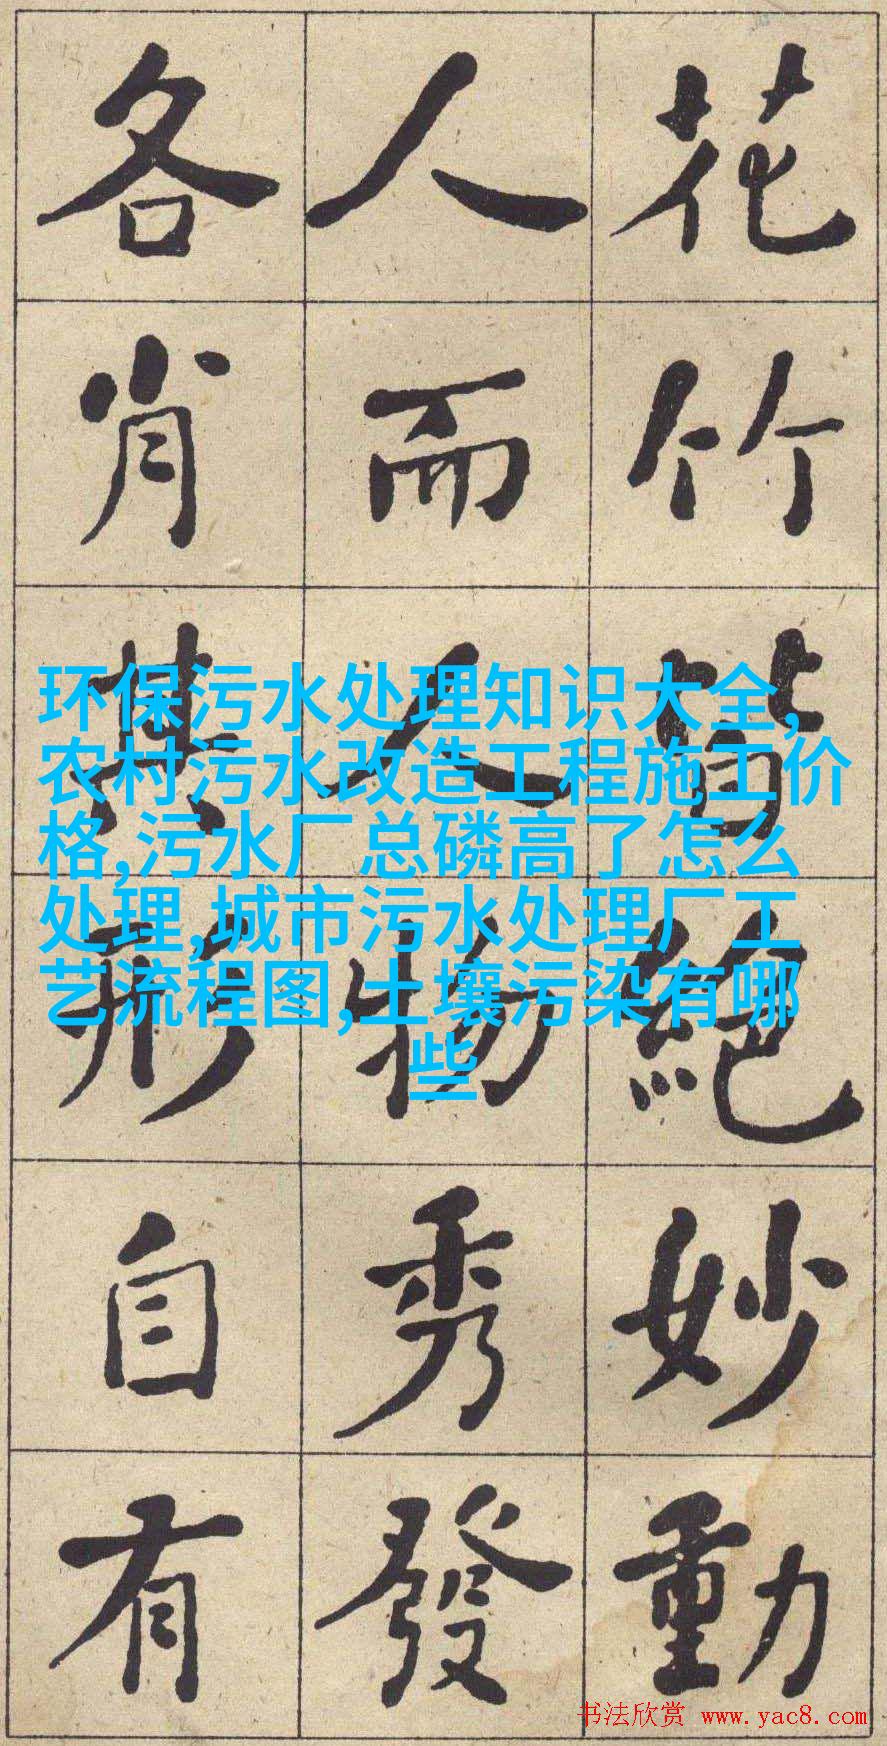 花竹皆絶妙動
人而人物秀發
各肖其形自有
环保污水处理知识大全,
农村污水改造工程施工价
格,污水厂总磷高了怎么
处理,城市污水处理厂工
艺流程图,土壤污染有哪
些
书法欣赏 www.yac8.com